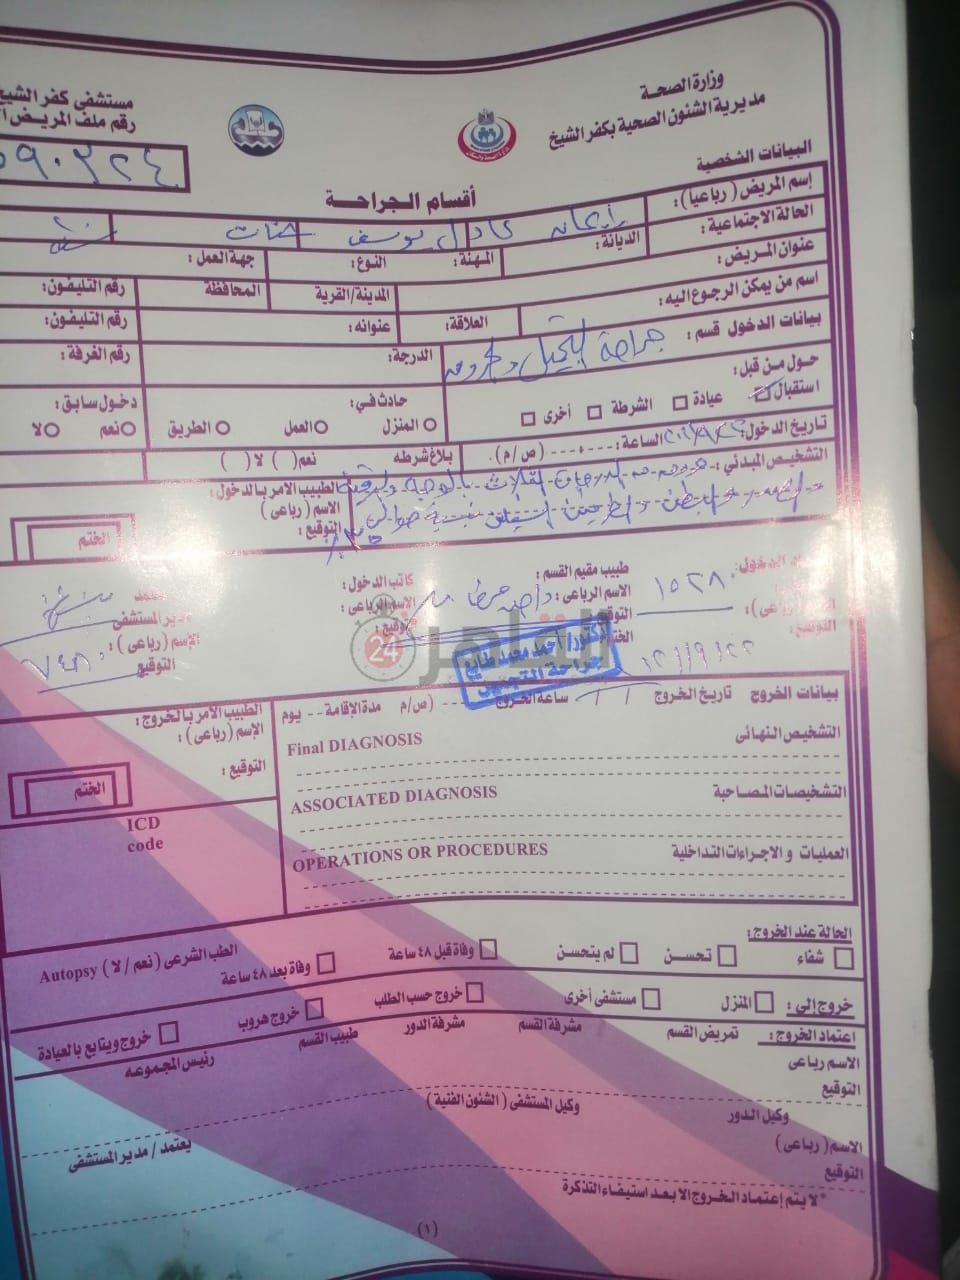 وزارة الصحة
مديرية الشئون الصحية بكفر الشيخ
مستشفى كفر الشيخ
رقم ملف المريض
٥٩٠٣٢٤
البيانات الشخصية
أقسام الجراحة
إسم المريض (رباعيا):
عادل يوسف
الحالة الاجتماعية:
الديانة:
المهنة:
النوع:
جهة العمل:
عنوان المريض:
المدينة/القرية
المحافظة
رقم التليفون:
اسم من يمكن الرجوع اليه:
العلاقة:
عنوانه:
رقم التليفون:
بيانات الدخول قسم:
جراحة التجميل والحروق
الدرجة:
رقم الغرفة:
حول من قبل:
استقبال
عيادة
الشرطة
أخرى
حادث في:
المنزل
العمل
الطريق
دخول سابق:
نعم
لا
تاريخ الدخول:
الساعة:
(ص/م).
بلاغ شرطه
نعم( ) لا( )
التشخيص المبدئي:
الطبيب الامر بالدخول:
الاسم (رباعى)
التوقيع:
الختم
طبيب مقيم القسم:
الاسم الرباعى:
التوقيع
الختم
كاتب الدخول:
الاسم الرباعى:
توقيع:
مدير المستشفى
الاسم (رباعى):
التوقيع
القاهرة
24
دكتور/ احمد محمد
جراحة التجميل
بيانات الخروج
تاريخ الخروج / /
ساعة الخروج
(ص/م
مدة الإقامة -- يوم
الطبيب الامر بالخروج:
الإسم (رباعى):
التوقيع:
الختم
التشخيص النهائى
Final DIAGNOSIS
التشخيصات المصاحبة
ASSOCIATED DIAGNOSIS
العمليات والاجراءات التداخلية
OPERATIONS OR PROCEDURES
ICD
code
الحالة عند الخروج:
شفاء
تحسن
لم يتحسن
وفاة قبل ٤٨ ساعة
وفاة بعد ٤٨ ساعة
الطب الشرعى (نعم / لا) Autopsy
خروج إلى:
المنزل
مستشفى أخرى
خروج حسب الطلب
خروج هروب
خروج ويتابع بالعيادة
اعتماد الخروج:
تمريض القسم
مشرفة القسم
مشرفة الدور
طبيب القسم
رئيس المجموعه
الاسم رباعى
التوقيع
وكيل الدور
وكيل المستشفى (الشئون الفنية)
يعتمد / مدير المستشفى
الاسم (رباعى)
التوقيع
*لا يتم إعتماد الخروج الا بعد استيفاء التذكرة
(١)